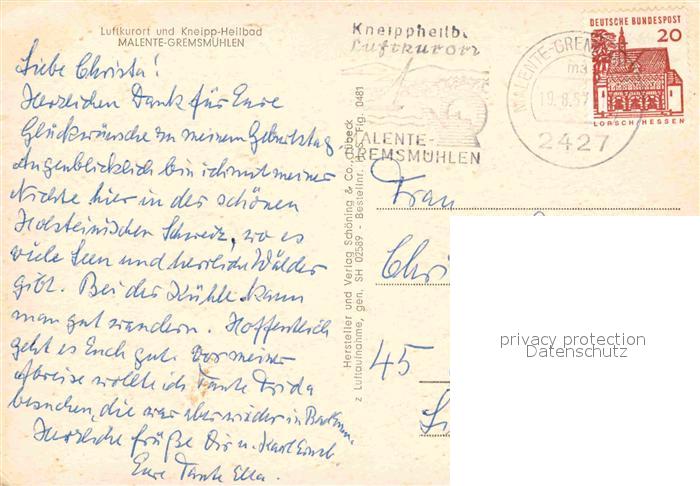 Luftkurort und Kneipp-Heilbad
MALENTE-GREMSMÜHLEN
Liebe Christa!
Herzlichen Dank für Eure
Glückwünsche zu meinem Geburtstag
Augenblicklich bin ich mit meiner
Nichte hier in der schönen
Holsteinischen Schweiz, wo es
viele Seen und herrliche Wälder
gibt. Bei der Kühle kann
man gut wandern. Hoffentlich
geht es Euch gut. Vor meiner
Abreise wollte ich Tante Frida
besuchen, die war aber wieder in
Herzliche Grüße Dir u. Karl Ernst
Eure Tante Ella.
Hersteller und Verlag Schöning & Co., Lübeck
z Luftaufnahme, gen. SH 02589 - Bestellnr. Fig. 0481
Kneippheilb
Luftkurort
MALENTE-
GREMSMÜHLEN
MALENTE-GREM
19.8.67
2427
DEUTSCHE BUNDESPOST
20
LORSCH/HESSEN
Frau
Chri
45
privacy protection
Datenschutz